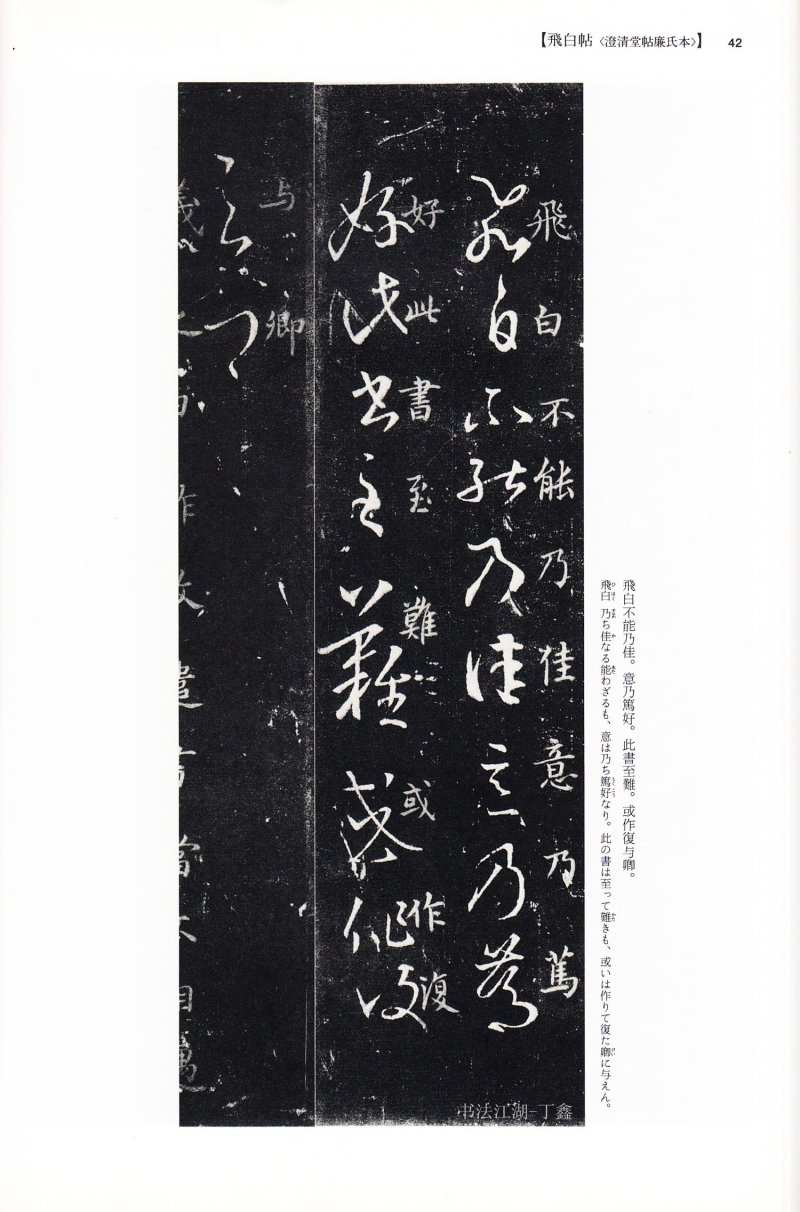 【飛白帖〈澄清堂帖廉氏本〉】 42
飛白不能乃佳。意乃篤好。此書至難。或作復与卿。
飛白 乃ち佳なる能わざるも、意は乃ち篤好なり。此の書は至って難きも、或いは作りて復た卿に与えん。
飛白不能乃佳意乃篤
飛白不能乃佳意乃篤
好此書至難或作復
好此書至難或作復
与卿
与卿
书法江湖-丁鑫